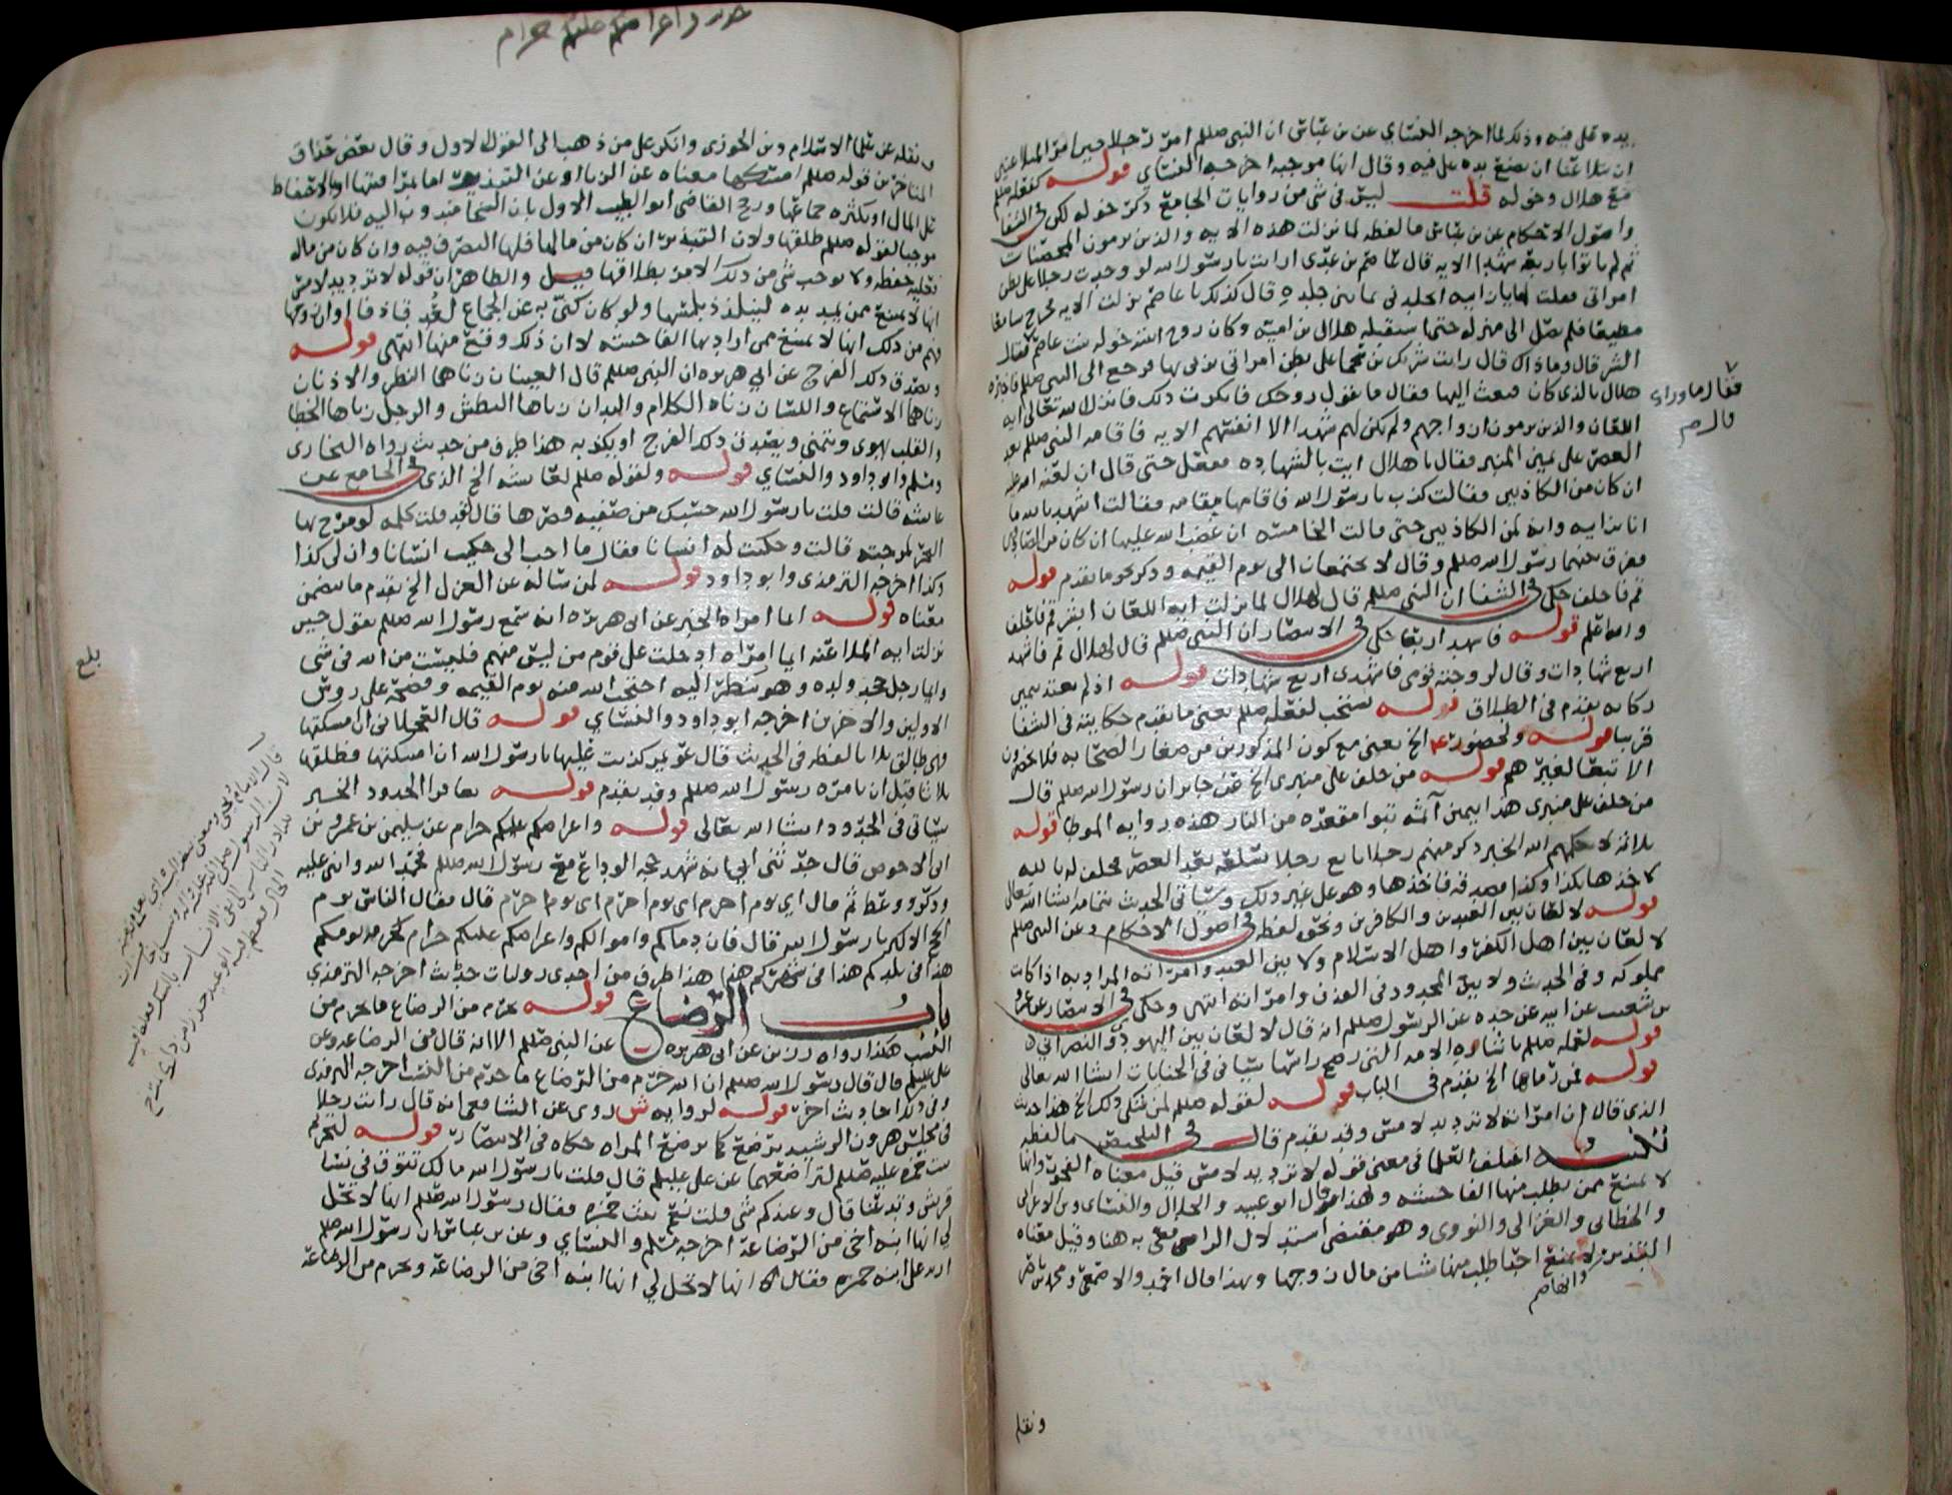 يده على فيه وذلك لما اخرجه النسائي عن بن عباس ان النبي صللم امر رجلا حين امر المتلاعنين
ان يتلاعنا ان يضع يده على فيه وقال انها موجبة اخرجه النسائي قوله كفعله صللم
مع هلال وخوله قلت ليس في شي من روايات الجامع ذكر خوله لكن في الشفا
واصول الاحكام عن بن عباس ما لفظه لما نزلت هذه الايه والذين يرمون المحصنات
ثم لم ياتوا باربعه شهدا الايه قال عاصم بن عدي ارايت يا رسول الله لو وجدت رجلا على بطن
امراتي فقلت لها يا زانيه اتجلدني ثمانين جلده قال كذلك يا عاصم نزلت الايه فخرج سامعا
مطيعا فلم يصل الى منزله حتى استقبله هلال بن اميه وكان زوج ابنته خوله بنت عاصم فقال
الشر قال وما ذاك قال رايت شريك بن سحما على بطن امراتي يزني بها فرجع الى النبي صللم فاخبره
هلال بالذي كان فبعث اليها فقال ما يقول زوجك فانكرت ذلك فانزل الله تعالى ايه
اللعان والذين يرمون ازواجهم ولم يكن لهم شهدا الا انفسهم الايه فاقامه النبي صللم بعد
العصر على يمين المنبر فقال يا هلال ايت بالشهاده ففعل حتى قال ان لعنه الله عليه
ان كان من الكاذبين فقالت كذب يا رسول الله فاقامها مقامه فقالت اشهد بالله ما
انا بزانيه وانه لمن الكاذبين حتى قالت الخامسه ان غضب الله عليها ان كان من الصادقين
ففرق بينهما رسول الله صللم وقال لا يجتمعان الى يوم القيمه وذكر نحو ما تقدم قوله
قم فاحلف حكى في الشفا ان النبي صللم قال لهلال لما نزلت ايه اللعان ايتني قم فاحلف
والله اعلم قوله فاشهد اربعا حكى في الانتصار ان النبي صللم قال لهلال قم فاشهد
اربع شهادات وقال لزوجته قومي فاشهدي اربع شهادات قوله اذ لم يعتد بيمين
ركانه تقدم في الطلاق قوله يستحب لفعله صللم يعني ما تقدم حكايته في الشفا
قريبا قوله ولحضور الخ يعني مع كون المذكورين من صغار الصحابه فلا يحضرون
الا تبعا لغيرهم قوله من حلف على منبري الخ عن جابر ان رسول الله صللم قال
من حلف على منبري هذا بيمين آثمه تبوا مقعده من النار هذه روايه الموطا قوله
ثلاثه لا يكلمهم الله الخبر ذكر منهم رجلا بايع رجلا سلعه بعد العصر فحلف له بالله
لاخذها بكذا وكذا فصدقه فاخذها وهو على غير ذلك وسياتي الحديث بتمامه انشا الله تعالى
قوله لا لعان بين العبدين والكافرين ونحوه لفظه في اصول الاحكام وعن النبي صللم
لا لعان بين اهل الكفر واهل الاسلام ولا بين العبد وامراته المراد به اذا كانت
مملوكه وفي الحديث ولا بين المحدود في القذف وامراته انتهى وحكى في الانتصار عن عمرو
بن شعيب عن ابيه عن جده عن الرسول صللم انه قال لا لعان بين اليهودي والنصراني
قوله لفعله صللم باشاره الامه التي رضخ راسها سياتي في الجنايات انشا الله تعالى
قوله لمن رماها الخ تقدم في الباب قوله لقوله صللم لمن شكى ذلك الخ هذا حديث
الذي قال ان امراته لا ترد يد لامس وقد تقدم قال في التلخيص ما لفظه
تنبيه اختلف العلما في معنى قوله لا ترد يد لامس فقيل معناه الفجور وانها
لا تمنع ممن يطلب منها الفاحشه ولهذا قال ابو عبيد والخلال والنسائي وبن الاعرابي
والخطابي والغزالي والنووي وهو مقتضى استدلال الرافعي به هنا وقيل معناه
التبذير وانها لا تمنع احدا طلب منها شيا من مال زوجها وبهذا قال احمد والاصمعي ومحمد بن ناصر
فقال ما وراك
قال
ونقله
ونقله عن علما الاسلام وبن الجوزي وانكر على من ذهب الى القول الاول وقال بعض حذاق
المتاخرين قوله صللم امسكها معناه عن الزنا او عن التبذير اما بمراقبتها او بالاحتفاظ
على المال او بكثره جماعها ورجح القاضي ابو الطيب الاول بان السخا مندوب اليه فلا يكون
موجبا لقوله صللم طلقها ولان التبذير ان كان من مالها فلها التصرف فيه وان كان من ماله
فعليه حفظه ولا يوجب شي من ذلك الامر بطلاقها قيل والظاهر ان قوله لا ترد يد لامس
انها لا تمنع من يمد يده ليتلذذ بلمسها ولو كان كنى به عن الجماع لعد قاذفا او ان زوجها
فهم من ذلك انها لا تمتنع ممن اراد بها الفاحشه لا ان ذلك وقع منها انتهى قوله
ويصدق ذلك الفرج عن ابي هريره ان النبي صللم قال العينان زناهما النظر والاذنان
زناهما الاستماع واللسان زناه الكلام واليدان زناها البطش والرجل زناها الخطا
والقلب يهوى ويتمنى ويصدق ذلك الفرج او يكذبه هذا طرف من حديث رواه البخاري
ومسلم وابو داود والنسائي قوله ولقوله صللم لعايشه الخ الذي في الجامع عن
عايشه قالت قلت يا رسول الله حسبك من صفيه قصرها قال لقد قلت كلمه لو مزج بها
البحر لمزجته قالت وحكيت له انسانا فقال ما احب اني حكيت انسانا وان لي كذا
وكذا اخرجه الترمذي وابو داود قوله لمن ساله عن العزل الخ تقدم ما يتضمن
معناه قوله ايما امراه الخبر عن ابي هريره انه سمع رسول الله صللم يقول حين
نزلت ايه الملاعنه ايما امراه ادخلت على قوم من ليس منهم فليست من الله في شي
وايما رجل جحد ولده وهو ينظر اليه احتجب الله منه يوم القيمه وفضحه على روس
الاولين والاخرين اخرجه ابو داود والنسائي قوله قال العجلاني ان امسكتها
فهي طالق ثلاثا لفظه في الحديث قال عويمر كذبت عليها يا رسول الله ان امسكتها فطلقها
ثلاثا قبل ان يامره رسول الله صللم وقد تقدم قوله تعافوا الحدود الخبر
سياتي في الحدود انشا الله تعالى قوله واعراضكم عليكم حرام عن سليمن بن عمرو بن
ابي الاحوص قال حدثني ابي انه شهد حجه الوداع مع رسول الله صللم فحمد الله واثنى عليه
وذكر ووعظ ثم قال اي يوم احرم اي يوم احرم اي يوم احرم قال فقال الناس يوم
الحج الاكبر يا رسول الله قال فان دماكم واموالكم واعراضكم عليكم حرام كحرمه يومكم
هذا في بلدكم هذا في شهركم هذا هذا طرف من احدى روايات حديث اخرجه الترمذي
باب الرضاع قوله يحرم من الرضاع ما يحرم من
النسب هكذا رواه رزين عن ابي هريره عن النبي صللم الا انه قال من الرضاعه وعن
علي عليلم قال قال رسول الله صللم ان الله حرم من الرضاع ما حرم من النسب اخرجه الترمذي
وفي ذلك احاديث اخر قوله لروايه ش روى عن الشافعي انه قال رايت رجلا
في مجلس هرون الرشيد يرضع كما ترضع المراه حكاه في الانتصار قوله لتحريم
بنت حمزه عليه صللم لتراضعهما عن علي عليلم قال قلت يا رسول الله مالك تنوق في نسا
قريش وتدعنا قال وعندكم شي قلت نعم بنت حمزه فقال رسول الله صللم انها لا تحل
لي انها ابنه اخي من الرضاعه اخرجه مسلم والنسائي وعن بن عباس ان رسول الله صللم
اريد على ابنه حمزه فقال انها لا تحل لي انها ابنه اخي من الرضاعه ويحرم من الرضاعه
بلغ
واعراضكم عليكم حرام